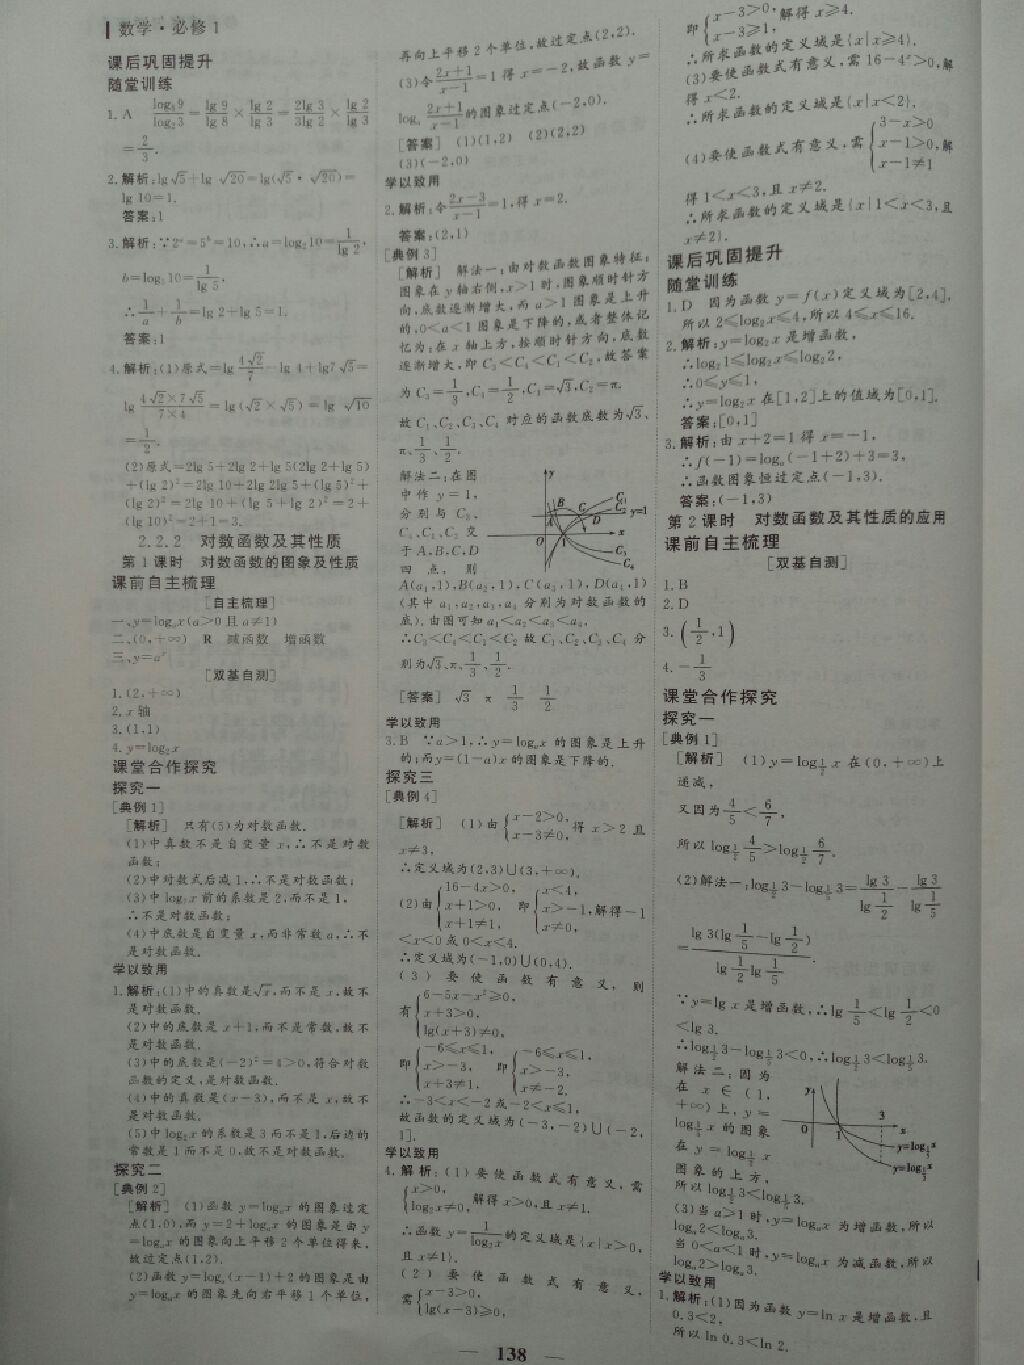 数学·必修1
课后巩固提升
随堂训练
1. A log₈9/log₂3=lg 9/lg 8×lg 2/lg 3=2lg 3/3lg 2×lg 2/lg 3
=2/3.
2.解析:lg√5+lg √20=lg(√5·√20)=
lg 10=1.
答案:1
3.解析:∵2ᵃ=5ᵇ=10,∴a=log₂10=1/lg 2,
b=log₅10=1/lg 5,
∴1/a+1/b=lg 2+lg 5=1.
答案:1
4.解析:(1)原式=lg 4√2/7-lg 4+lg7√5=
lg 4√2×7√5/7×4=lg(√2×√5)=lg √10
=1/2.
(2)原式=2lg 5+2lg 2+lg 5(2lg 2+lg 5)
+(lg 2)²=2lg 10+2lg 2lg 5+(lg 5)²+
(lg 2)²=2lg 10+(lg 5+lg 2)²=2+
(lg 10)²=2+1=3.
2.2.2 对数函数及其性质
第1课时 对数函数的图象及性质
课前自主梳理
[自主梳理]
一、y=logₐx(a>0且a≠1)
二、(0,+∞) R 减函数 增函数
三、y=aˣ
[双基自测]
1.(2,+∞)
2.x轴
3.(1,1)
4.y=log₂x
课堂合作探究
探究一
[典例1]
[解析] 只有(5)为对数函数.
(1)中真数不是自变量x,∴不是对数
函数;
(2)中对数式后减1,∴不是对数函数;
(3)中log₂x前的系数是2,而不是1,
∴不是对数函数;
(4)中底数是自变量x,而非常数a,∴不
是对数函数.
学以致用
1.解析:(1)中的真数是√x,而不是x,故不
是对数函数.
(2)中的底数是x+1,而不是常数,故不
是对数函数.
(3)中的底数是(-2)²=4>0,符合对数
函数的定义,是对数函数.
(4)中的真数是(x-3),而不是x,故不
是对数函数.
(5)中log₂x的系数是3而不是1,后边的
常数是1而不是0,故不是对数函数.
探究二
[典例2]
[解析] (1)函数y=logₐx的图象过定
点(1,0),而y=2+logₐx的图象是由y
=logₐx的图象向上平移2个单位得来,
故过定点(1,2).
(2)函数y=logₐ(x-1)+2的图象是由
y=logₐx的图象先向右平移1个单位,
再向上平移2个单位,故过定点(2,2).
(3)令2x+1/x-1=1得x=-2,故函数y=
logₐ 2x+1/x-1的图象过定点(-2,0).
[答案] (1)(1,2) (2)(2,2)
(3)(-2,0)
学以致用
2.解析:令2x-3/x-1=1,得x=2.
答案:(2,1)
[典例3]
[解析] 解法一:由对数函数图象特征:
图象在y轴右侧,x>1时,图象顺时针方
向,底数逐渐增大,而a>1图象是上升
的,0<a<1图象是下降的,或者整体记
忆为:在x轴上方,按顺时针方向,底数
逐渐增大,即C₃<C₄<C₁<C₂,故答案
为C₃=1/3,C₄=1/2,C₁=√3,C₂=π.
故C₁、C₂、C₃、C₄对应的函数底数为√3、
π、1/3、1/2.
解法二:在图
中作y=1,
分别与C₃、
C₄、C₁、C₂交
于A、B、C、D
四点,则
y
A B C D C₁ C₂ y=1
O 1 x
C₃
C₄
A(a₁,1),B(a₂,1),C(a₃,1),D(a₄,1)
(其中a₁,a₂,a₃,a₄分别为对数函数的
底),由图可知a₁<a₂<a₃<a₄,
∴C₃<C₄<C₁<C₂故C₁、C₂、C₃、C₄分
别为√3、π、1/3、1/2.
[答案] √3 π 1/3 1/2
学以致用
3.B ∵a>1,∴y=logₐx的图象是上升
的;而y=(1-a)x的图象是下降的.
探究三
[典例4]
[解析] (1)由{x-2>0, x-3≠0,得x>2且
x≠3,
∴定义域为(2,3)∪(3,+∞).
(2)由{16-4x>0, x+1>0, x+1≠1,即{x<4, x>-1, x≠0,解得-1
<x<0或0<x<4.
∴定义域为(-1,0)∪(0,4).
(3)要使函数有意义,则
有{6-5x-x²≥0, x+3>0, lg(x+3)≠0,
即{-6≤x≤1, x>-3, x+3≠1,即{-6≤x≤1, x>-3, x≠-2,
∴-3<x<-2或-2<x≤1,
故函数的定义域为(-3,-2)∪(-2,
1].
学以致用
4.解析:(1)要使函数式有意义,需
{x>0, log₂x≠0,解得x>0,且x≠1.
∴函数y=1/log₂x的定义域是{x|x>0,
且x≠1}.
(2)要使函数式有意义,
需{x-3>0, lg(x-3)≥0,
即{x-3>0, x-3≥1,解得x≥4.
∴所求函数的定义域是{x|x≥4}.
(3)要使函数式有意义,需16-4ˣ>0,解
得x<2.
∴所求函数的定义域是{x|x<2}.
(4)要使函数式有意义,需{3-x>0 x-1>0, x-1≠1解
得1<x<3,且x≠2.
∴所求函数的定义域是{x|1<x<3,且
x≠2}.
课后巩固提升
随堂训练
1. D 因为函数y=f(x)定义域为[2,4],
所以2≤log₂x≤4,所以4≤x≤16.
2.解析:y=log₂x是增函数,
∴log₂1≤log₂x≤log₂2,
∴0≤y≤1,
∴y=log₂x在[1,2]上的值域为[0,1].
答案:[0,1]
3.解析:由x+2=1得x=-1,
∴f(-1)=logₐ(-1+2)+3=3,
∴函数图象恒过定点(-1,3).
答案:(-1,3)
第2课时 对数函数及其性质的应用
课前自主梳理
[双基自测]
1. B
2. D
3. (1/2,1)
4. -1/3
课堂合作探究
探究一
[典例1]
[解析] (1)y=log½x在(0,+∞)上
递减,
又因为4/5<6/7,
所以log½ 4/5>log½ 6/7.
(2)解法一:log½3-log⅕3=lg 3/lg ½-lg 3/lg ⅕
=lg 3(lg ⅕-lg ½)/lg ½lg ⅕.
∵y=lg x是增函数,∴lg ⅕<lg ½<0
<lg 3.
∴log½3-log⅕3<0,∴log½3<log⅕3.
解法二:因为
在x∈(1,
+∞)上,y=
log⅕x的图象
在y=log½x
图象的上方,
所以log½3<log⅕3.
y
O 1 3 x
y=log⅕x
y=log½x
(3)当a>1时,y=logₐx为增函数,所以
logₐ2<logₐ3.
当0<a<1时,y=logₐx为减函数,所以
logₐ2>logₐ3.
学以致用
1.解析:(1)因为函数y=ln x是增函数,且
0.3<2,
所以ln 0.3<ln 2.
— 138 —